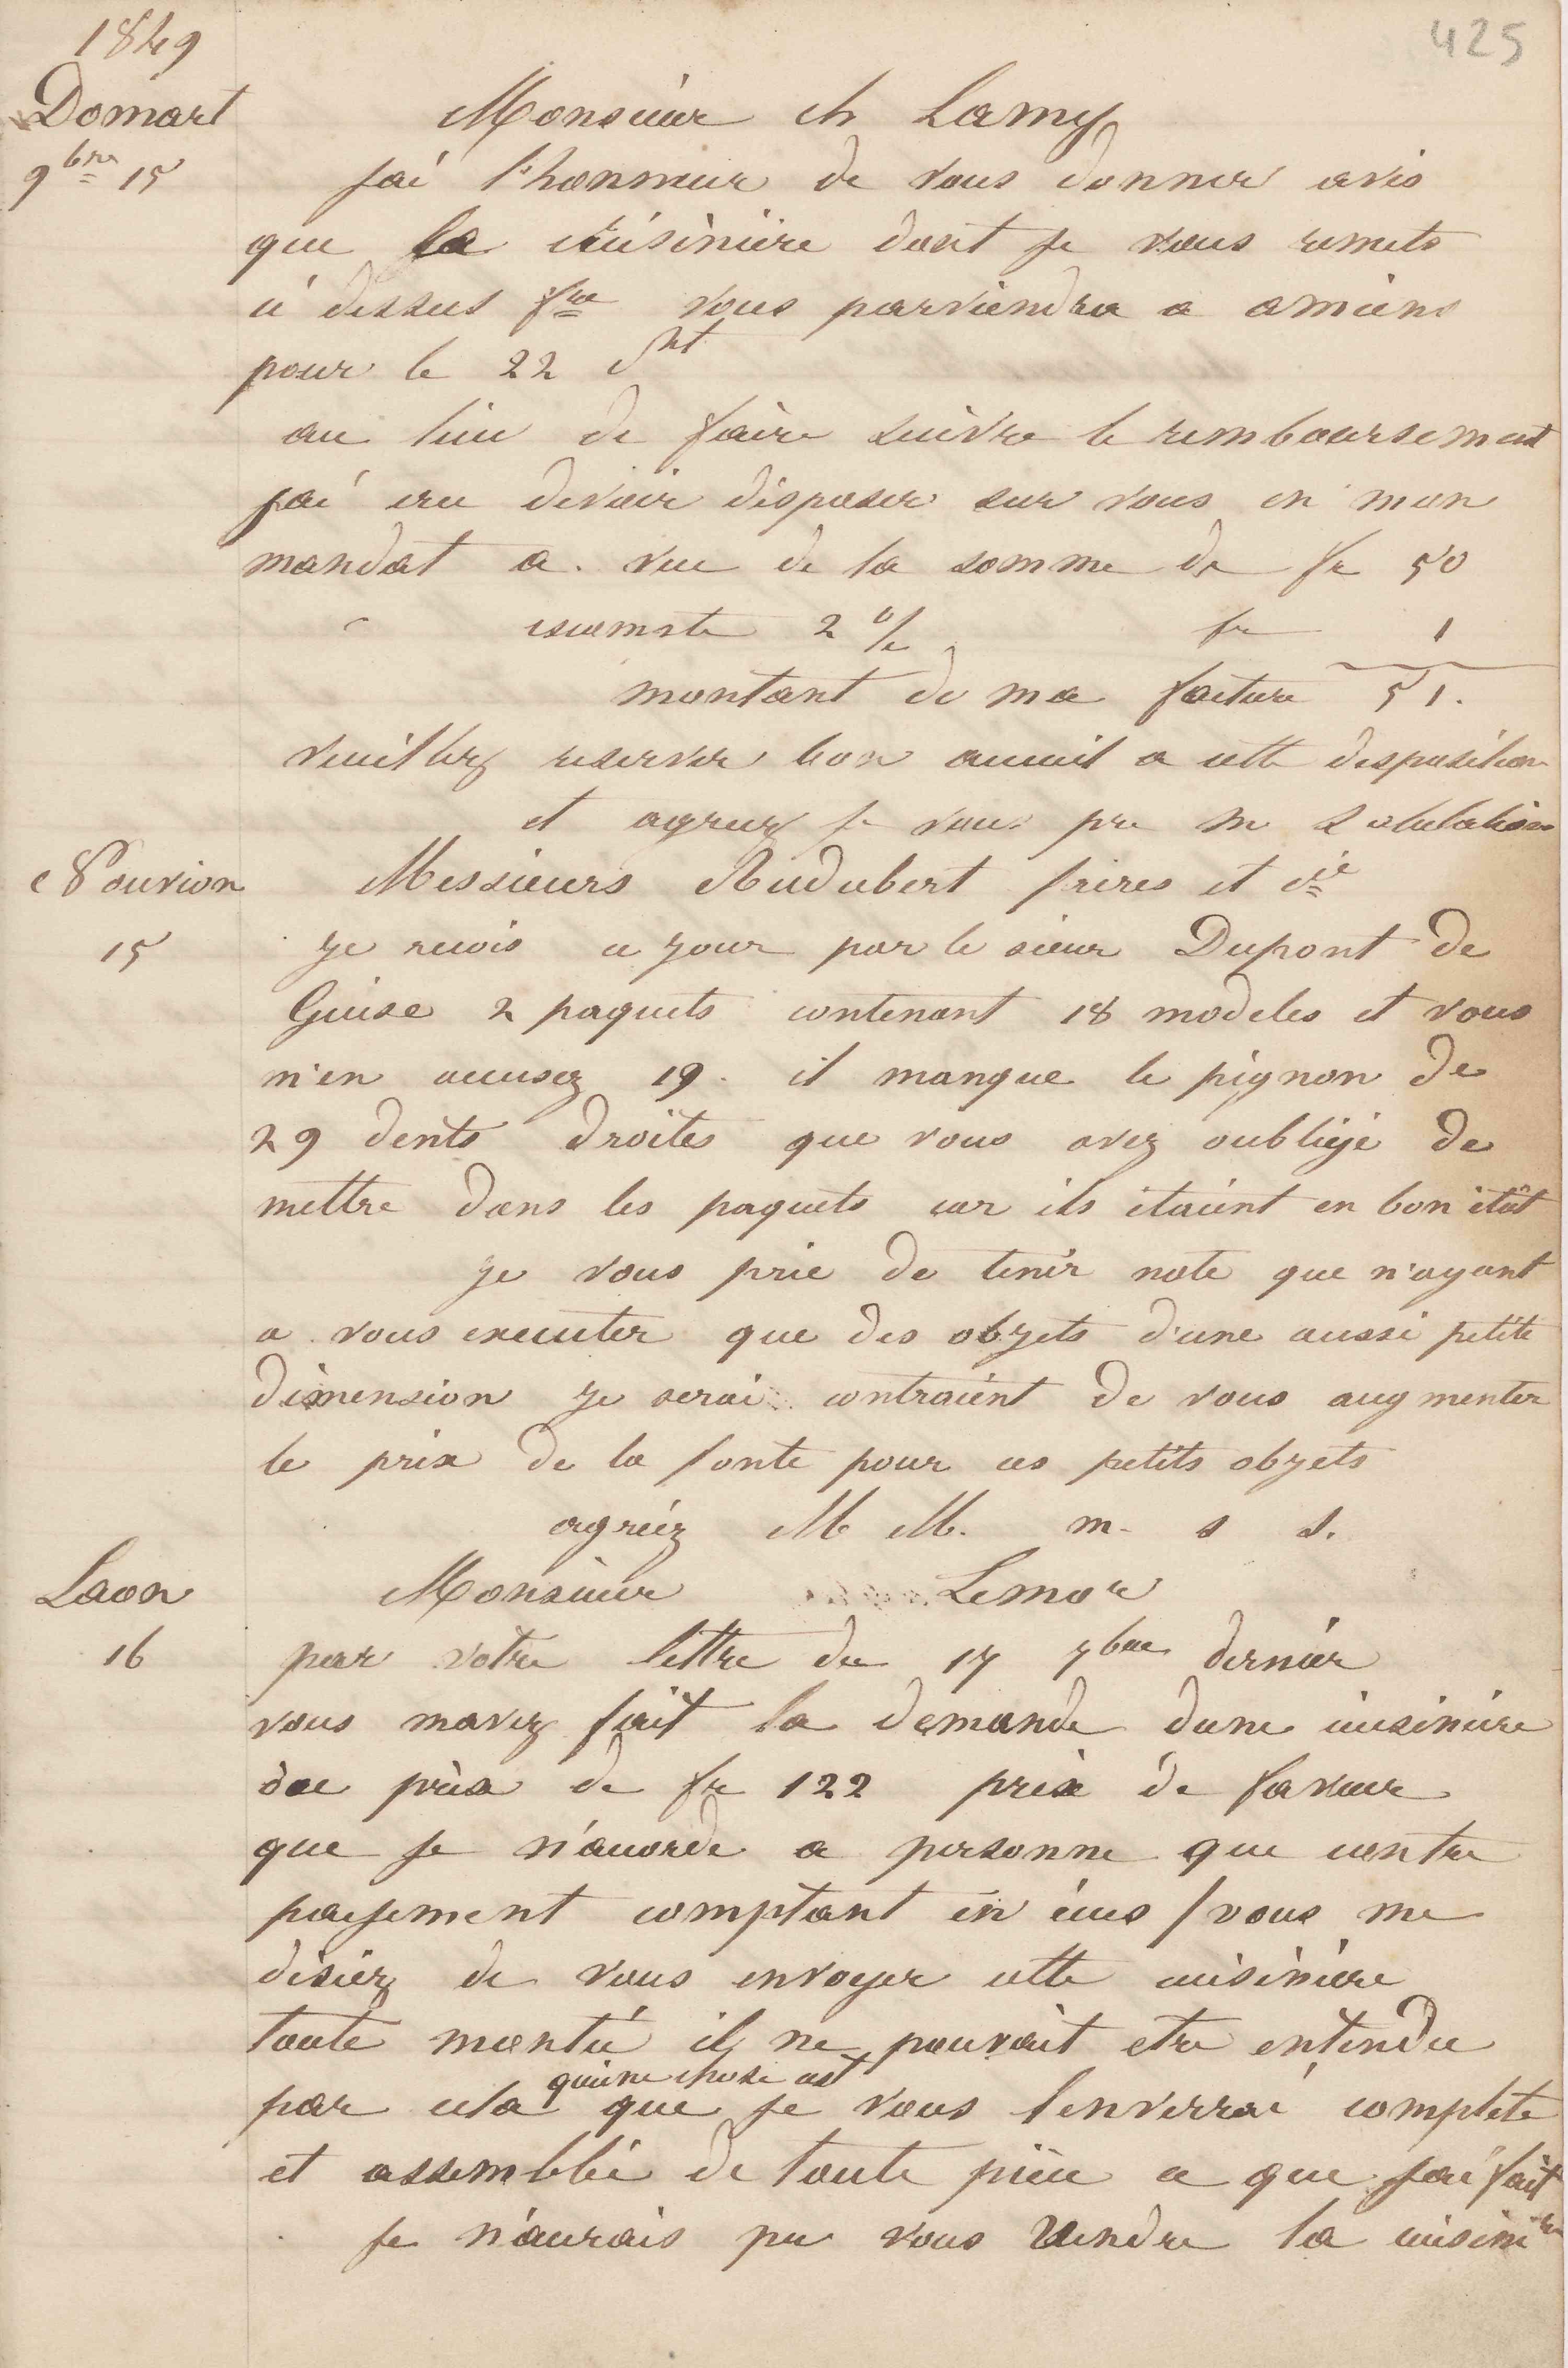 425
1849
Domart
9bre 15
Monsieur ch Lamy
jai l'honneur de vous donner avis
que la cuisinière dont je vous remets
ci dessus fre vous parviendra a amiens
pour le 22 ct
au lieu de faire suivre le remboursement
jai cru devoir disposer sur vous en mon
mandat a vue de la somme de fr 50
escompte 2 % fr 1
montant de ma facture 51.
veuillez reserver bon accueil a cette disposition
et agreez je vous prie m salutations
Nouvion
15
Messieurs Audubert frères et cie
je recois ce jour par le sieur Dupont de
Guise 2 paquets contenant 18 modeles et vous
m'en accusez 19. il manque le pignon de
29 dents droites que vous avez oublié de
mettre dans les paquets car ils étaient en bon état
je vous prie de tenir note que n'ayant
a vous executer que des objets d'une aussi petite
dimension je serai contraint de vous augmenter
le prix de la fonte pour ces petits objets
agréez M M. m. s s.
Laon
16
Monsieur Lemor
par votre lettre du 17 7bre dernier
vous mavez fait la demande dune cuisinière
au prix de fr 122 prix de faveur
que je n'accorde a personne que contre
payement comptant en écus / vous me
disiez de vous envoyer cette cuisinière
toute montée il ne pouvait etre entendu
par cela qu'une chose cest que je vous lenverrai complete
et assemblée de toute pièce ce que jai fait
je n'aurais pu vous vendre la cuisinière